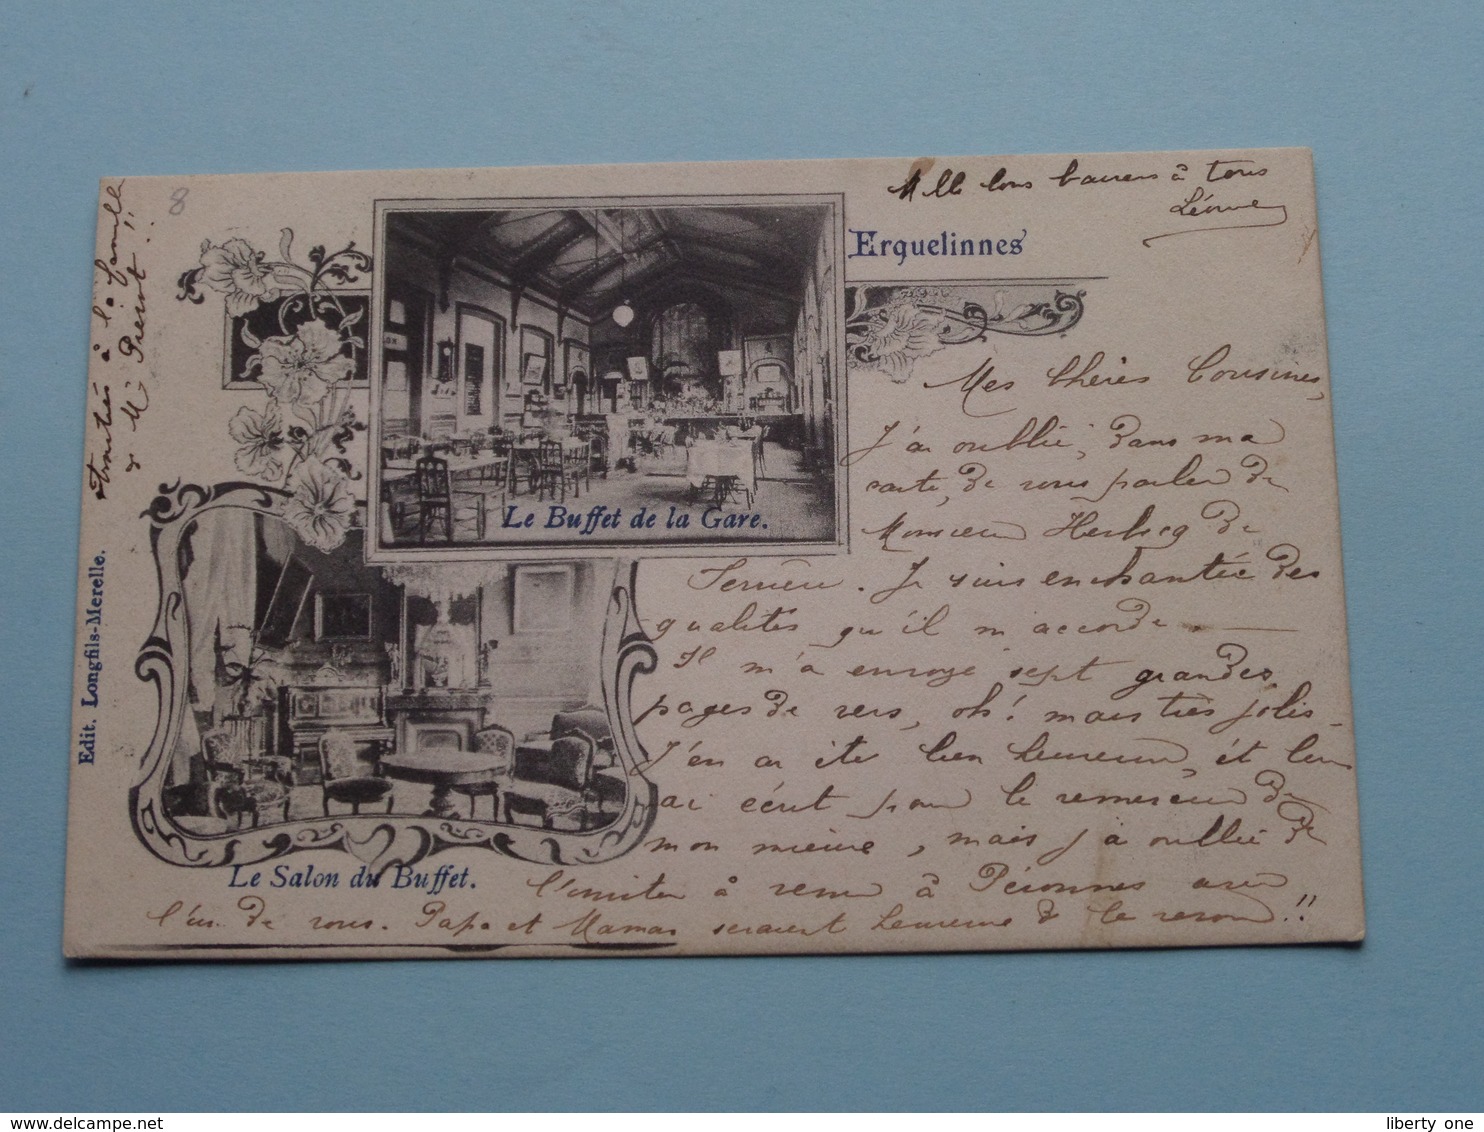 Mlle bons baisers à tous
Léonie
8
Erquelinnes
amitiés à la famille
& Mr !!
Le Buffet de la Gare.
Le Salon du Buffet.
Edit. Longfils-Merelle.
Mes chères Cousines,
J'ai oublié, dans ma
carte, de vous parler de
Monsieur de
. Je suis enchantée des
qualités qu'il m'accorde.
Il m'a envoyé sept grandes
pages de vers, oh! mais très jolis.
J'en ai été bien heureuse, et leur
ai écrit pour le remercier de
mon mieux, mais j'ai oublié de
l'inviter à venir à Péronnes avec
l'un de vous. Papa et Maman seraient heureux de le revoir!!
www.delcampe.net
liberty one